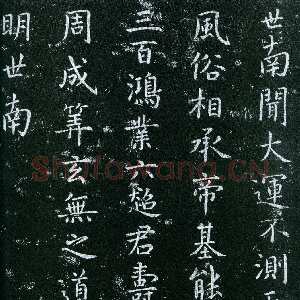 世南聞大運不測
風俗相承帝基能
三百鴻業六超君壽
周成筭玄無之道
明世南